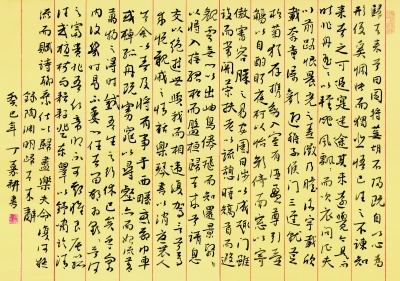 歸去來兮田園將蕪胡不歸既自以心為
形役奚惆悵而獨悲悟已往之不諫知
来者之可追寔迷途其未遠覺今是而
昨非舟遥遥以輕颺風飄飄而吹衣問征夫
以前路恨晨光之熹微乃瞻衡宇載欣
載奔童僕歡迎稚子候門三逕就荒
松菊猶存攜幼入室有酒盈樽引壺
觴以自酌眄庭柯以怡顏倚南窗以寄
傲審容膝之易安園日涉以成趣門雖
設而常關策扶老以流憩時矯首而遐
觀雲無心以出岫鳥倦飛而知還景翳翳
以將入撫孤松而盤桓歸去來兮請息
交以絕遊世與我而相遺復駕言兮焉
求悅親戚之情話樂琴書以消憂農人
告余以春及將有事于西疇或命巾車
或棹孤舟既窈窕以尋壑亦崎嶇
萬物之得時感吾生之行休已矣乎寓形宇
内復幾時曷不委心任去留胡為遑遑欲何
之富貴非吾願帝鄉不可期懷良辰以孤
往或植杖而耘耔登東皋以舒嘯臨清
流而賦詩聊乘化以歸盡樂夫天命復奚疑
錄陶淵明歸去來辭
癸巳年 丁 耕書